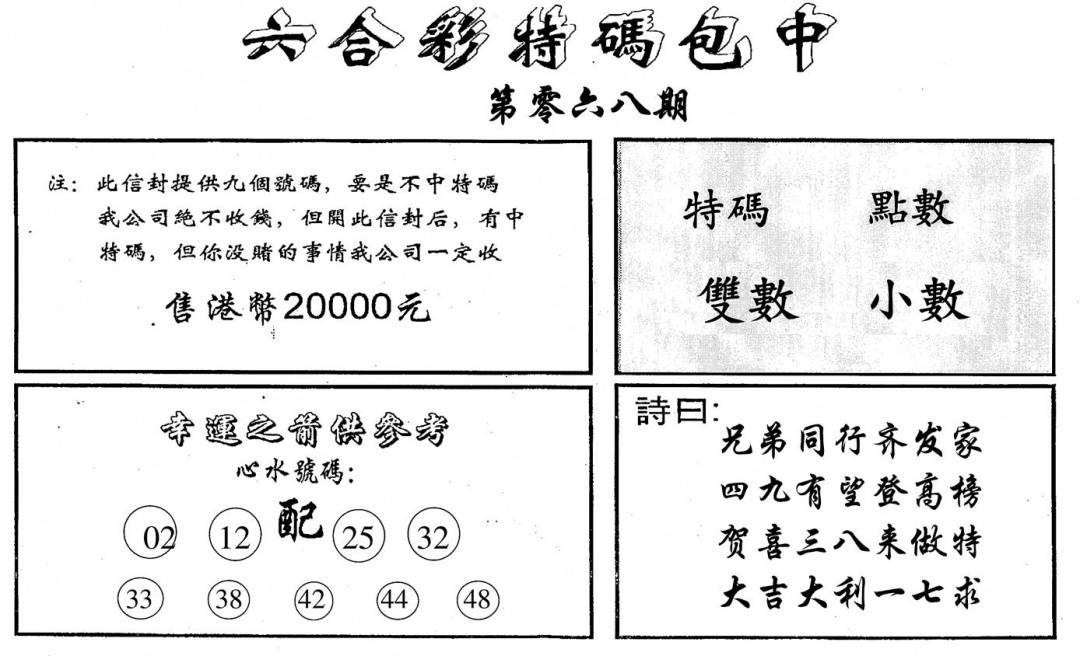 六合彩特碼包中
第零六八期
注：此信封提供九個號碼，要是不中特碼
我公司絕不收錢，但開此信封后，有中
特碼，但你没賭的事情我公司一定收
售港幣20000元
特碼 點數
雙數 小數
幸運之箭供參考
心水號碼：
配
02 12 25 32
33 38 42 44 48
詩曰：
兄弟同行齐发家
四九有望登高榜
贺喜三八来做特
大吉大利一七求